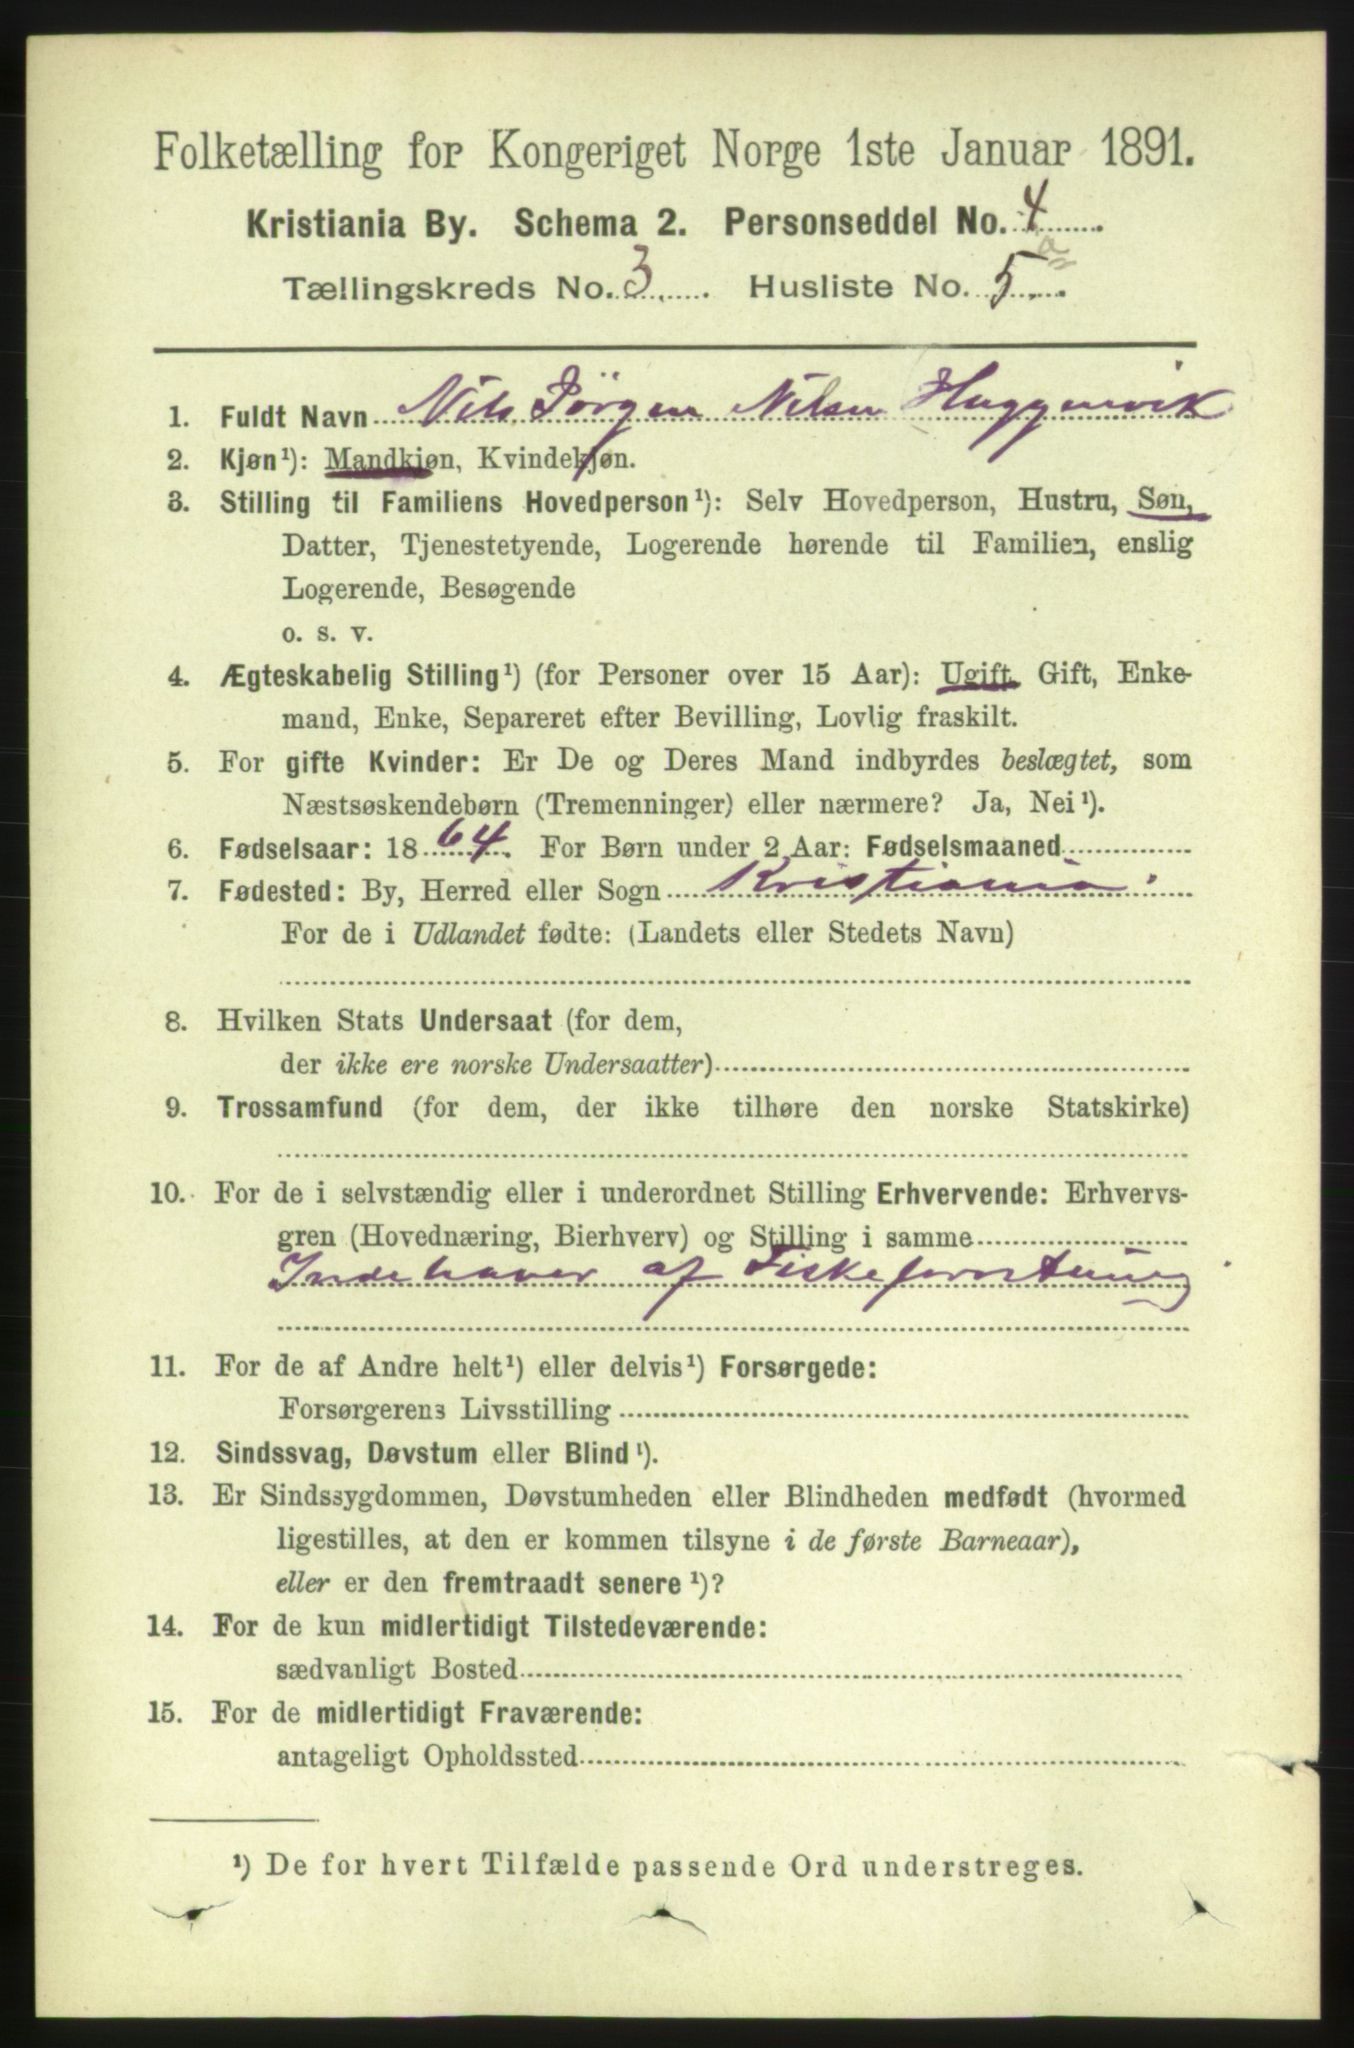 Folketælling for Kongeriget Norge 1ste Januar 1891.
Kristiania By. Schema 2. Personseddel No. 4
Tællingskreds No. 3 Husliste No. 5a
1. Fuldt Navn Nils Jörgen Nilsen Huggenvik
2. Kjøn¹): Mandkjøn, Kvindekjøn.
3. Stilling til Familiens Hovedperson¹): Selv Hovedperson, Hustru, Søn,
Datter, Tjenestetyende, Logerende hørende til Familien, enslig
Logerende, Besøgende
o. s. v.
4. Ægteskabelig Stilling¹) (for Personer over 15 Aar): Ugift, Gift, Enke-
mand, Enke, Separeret efter Bevilling, Lovlig fraskilt.
5. For gifte Kvinder: Er De og Deres Mand indbyrdes beslægtet, som
Næstsøskendebørn (Tremenninger) eller nærmere? Ja, Nei¹).
6. Fødselsaar: 1864. For Børn under 2 Aar: Fødselsmaaned
7. Fødested: By, Herred eller Sogn Kristiania
For de i Udlandet fødte: (Landets eller Stedets Navn)
8. Hvilken Stats Undersaat (for dem,
der ikke ere norske Undersaatter)
9. Trossamfund (for dem, der ikke tilhøre den norske Statskirke)
10. For de i selvstændig eller i underordnet Stilling Erhvervende: Erhvervs-
gren (Hovednæring, Bierhverv) og Stilling i samme
Indehaver af Fiskeforretning
11. For de af Andre helt¹) eller delvis¹) Forsørgede:
Forsørgerens Livsstilling
12. Sindssvag, Døvstum eller Blind¹).
13. Er Sindssygdommen, Døvstumheden eller Blindheden medfødt (hvormed
ligestilles, at den er kommen tilsyne i de første Barneaar),
eller er den fremtraadt senere¹)?
14. For de kun midlertidigt Tilstedeværende:
sædvanligt Bosted
15. For de midlertidigt Fraværende:
antageligt Opholdssted
¹) De for hvert Tilfælde passende Ord understreges.